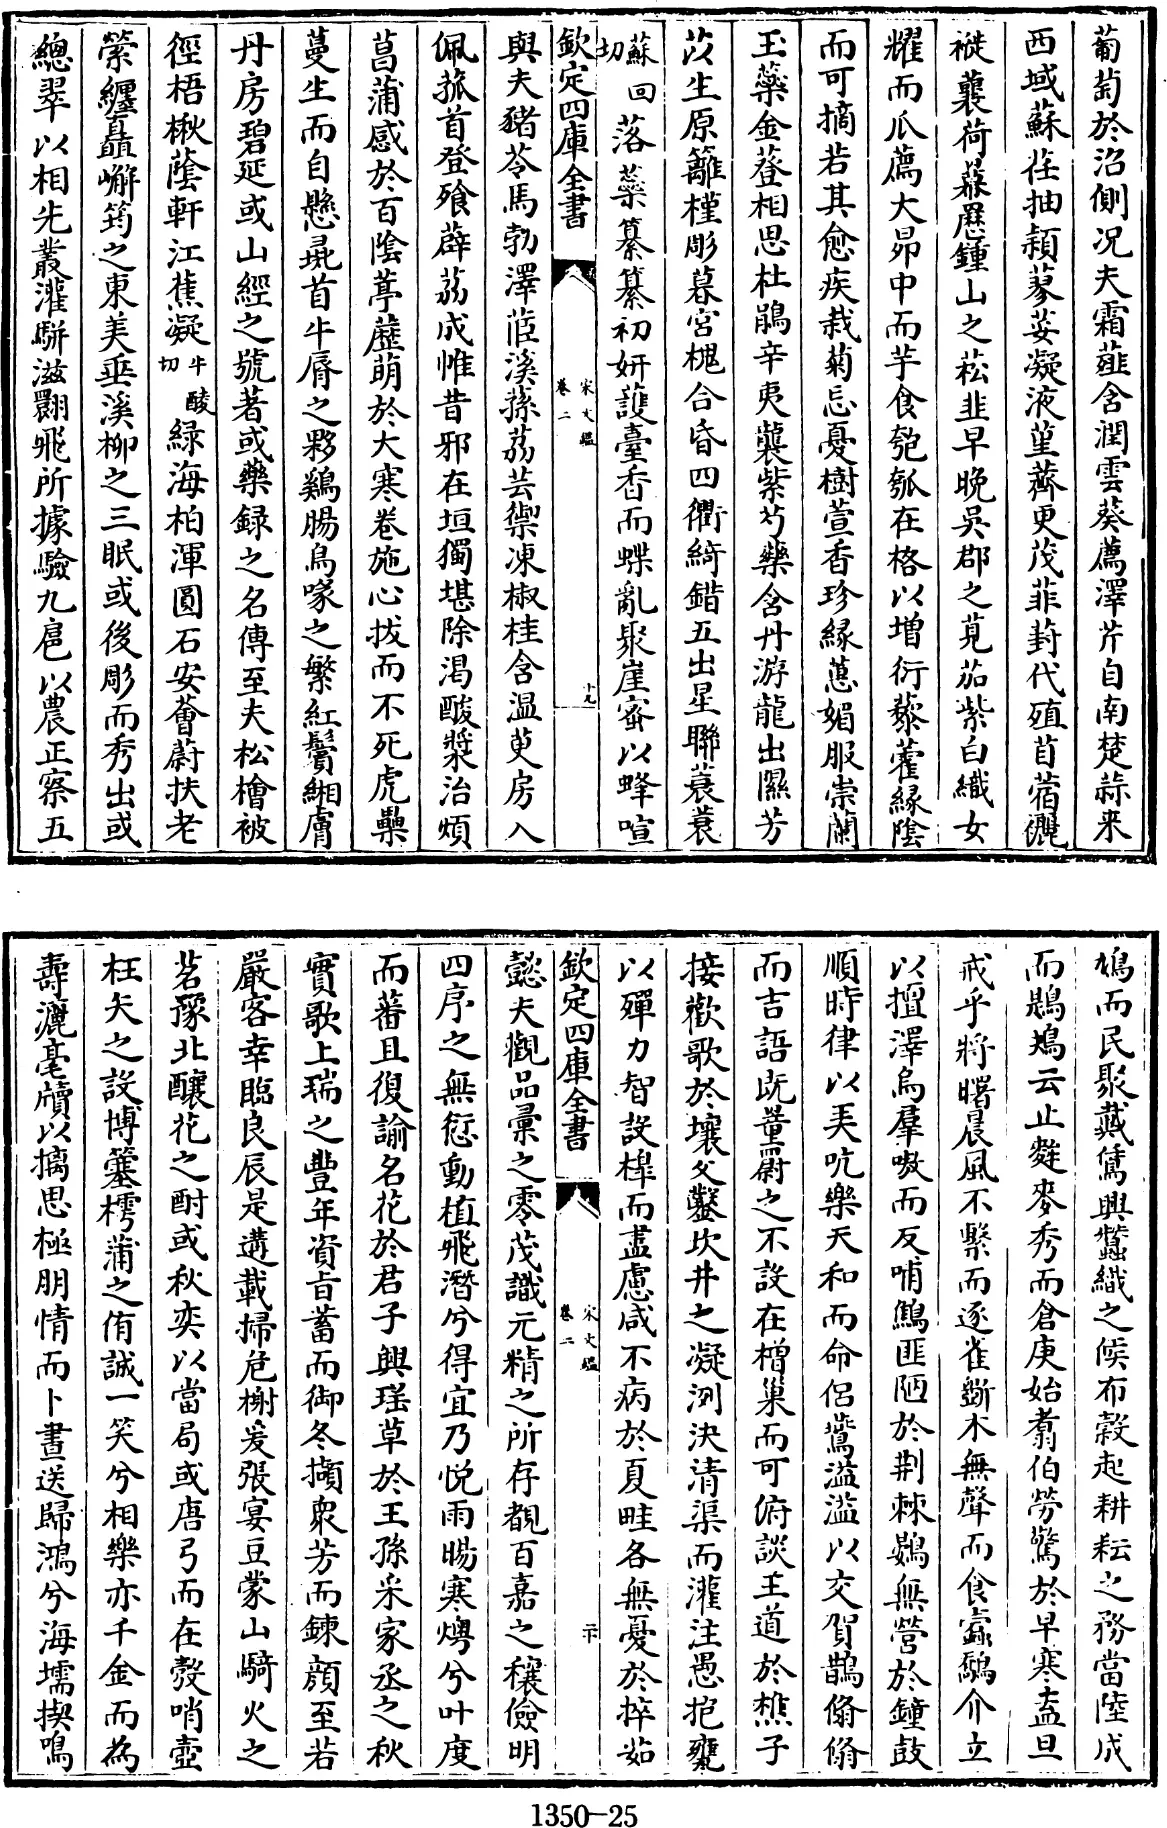 葡萄於沼側况夫霜薤含潤雲葵薦澤芹自南楚蒜来
西域蘇荏抽穎蓼荽凝液菫薺更茂菲葑代殖苜蓿𬪩
褷蘘荷幕䍥鍾山之菘韭早晩吳郡之莧茄紫白織女
耀而瓜薦大昴中而芋食匏瓠在格以增衍藜藿緣陰
而可摘若其愈疾栽菊忘憂樹萱香珍緣蕙媚服崇蘭
玉蘂金簦相思杜鵑辛夷襲紫芍藥含丹游龍出隰芳
苡生原籬槿彫暮宮槐合昏四衢綺錯五出星聯蓑蓑
蘇回切落蘂纂纂初妍護臺香而蝶亂聚崖蜜以蜂喧
欽定四庫全書 宋文鑑 卷二 十九
與夫豬苓馬勃澤茝溪蓀荔芸禦凍椒桂含温萸房入
佩菰首登飱薜荔成帷昔邪在垣獨堪除渴酸漿治煩
菖蒲感於百陰葶藶萌於大寒卷施心拔而不死虎櫐
蔓生而自懸彘首牛脣之夥鷄腸烏喙之繁紅鬚緗膚
丹房碧延或山經之號著或藥録之名傳至夫松檜被
徑梧楸蔭軒江蕉凝牛酸切緑海柏渾圓石安薈蔚扶老
縈纏矗嶰筠之東美垂溪柳之三眠或後彫而秀出或
總翠以相先叢灌駢滋翾飛所據驗九扈以農正察五
鳩而民聚戴鵀興蠶織之候布榖起耕耘之務當陸成
而鶗鴂云止䴭麥秀而倉庚始翥伯勞驚於早寒盍旦
戒乎將曙晨風不繫而逐雀斵木無聲而食蠧鷸介立
以擅澤烏羣噭而反哺鷦匪陋於荆棘鷃無營於鐘鼓
順時律以美吭樂天和而命侣鷽溢溢以交賀鵲翛翛
而吉語既罿罻之不設在橧巢而可俯談王道於樵子
接歡歌於壤父鑿坎井之凝洌決清渠而灌注愚抱甕
以殫力智設槹而盡慮咸不病於夏畦各無憂於捽茹
欽定四庫全書 宋文鑑 卷二 二十
懿夫觀品彚之零茂識元精之所存覩百嘉之穰儉明
四序之無愆動植飛潛兮得宜乃悦雨暘寒燠兮叶度
而蕃且復諭名花於君子興瑤草於王孫采家丞之秋
實歌上瑞之豐年資旨蓄而御冬擷衆芳而鍊顔至若
嚴客幸臨良辰是遘載掃危榭爰張宴豆蒙山騎火之
茗豫北釀花之酎或秋奕以當局或唐弓而在彀哨壺
枉矢之設博簺樗蒲之侑誠一笑兮相樂亦千金而為
壽灑毫牘以摛思極朋情而卜晝送歸鴻兮海壖揳鳴
1350-25